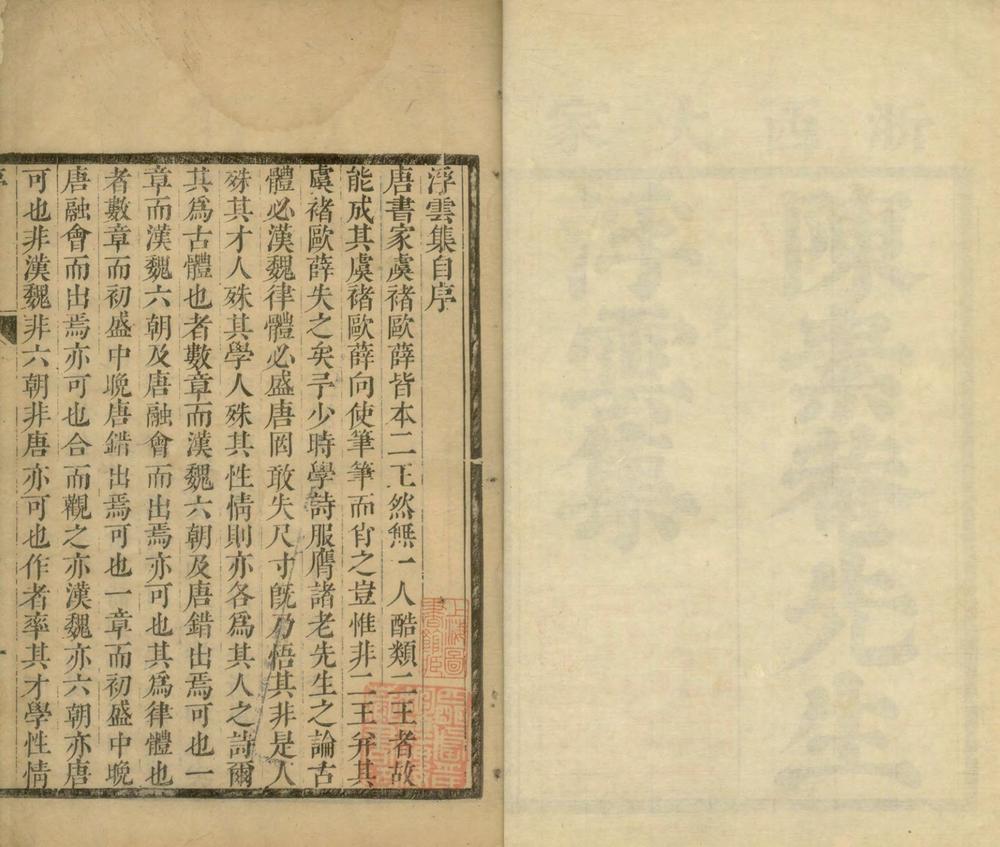 浙西大家
陳素菴先生
浮雲集
浮雲集自序
唐書家虞褚歐薛皆本二王然無一人酷類二王者故
能成其虞褚歐薛向使筆筆而肖之豈惟非二王并其
虞褚歐薛失之矣予少時學詩服膺諸老先生之論古
體必漢魏律體必盛唐罔敢失尺寸旣乃悟其非是人
殊其才人殊其學人殊其性情則亦各爲其人之詩爾
其爲古體也者數章而漢魏六朝及唐錯出焉可也一
章而漢魏六朝及唐融會而出焉亦可也其爲律體也
者數章而初盛中晚唐錯出焉可也一章而初盛中晚
唐融會而出焉亦可也合而觀之亦漢魏亦六朝亦唐
可也非漢魏非六朝非唐亦可也作者率其才學性情
上海圖
書館藏